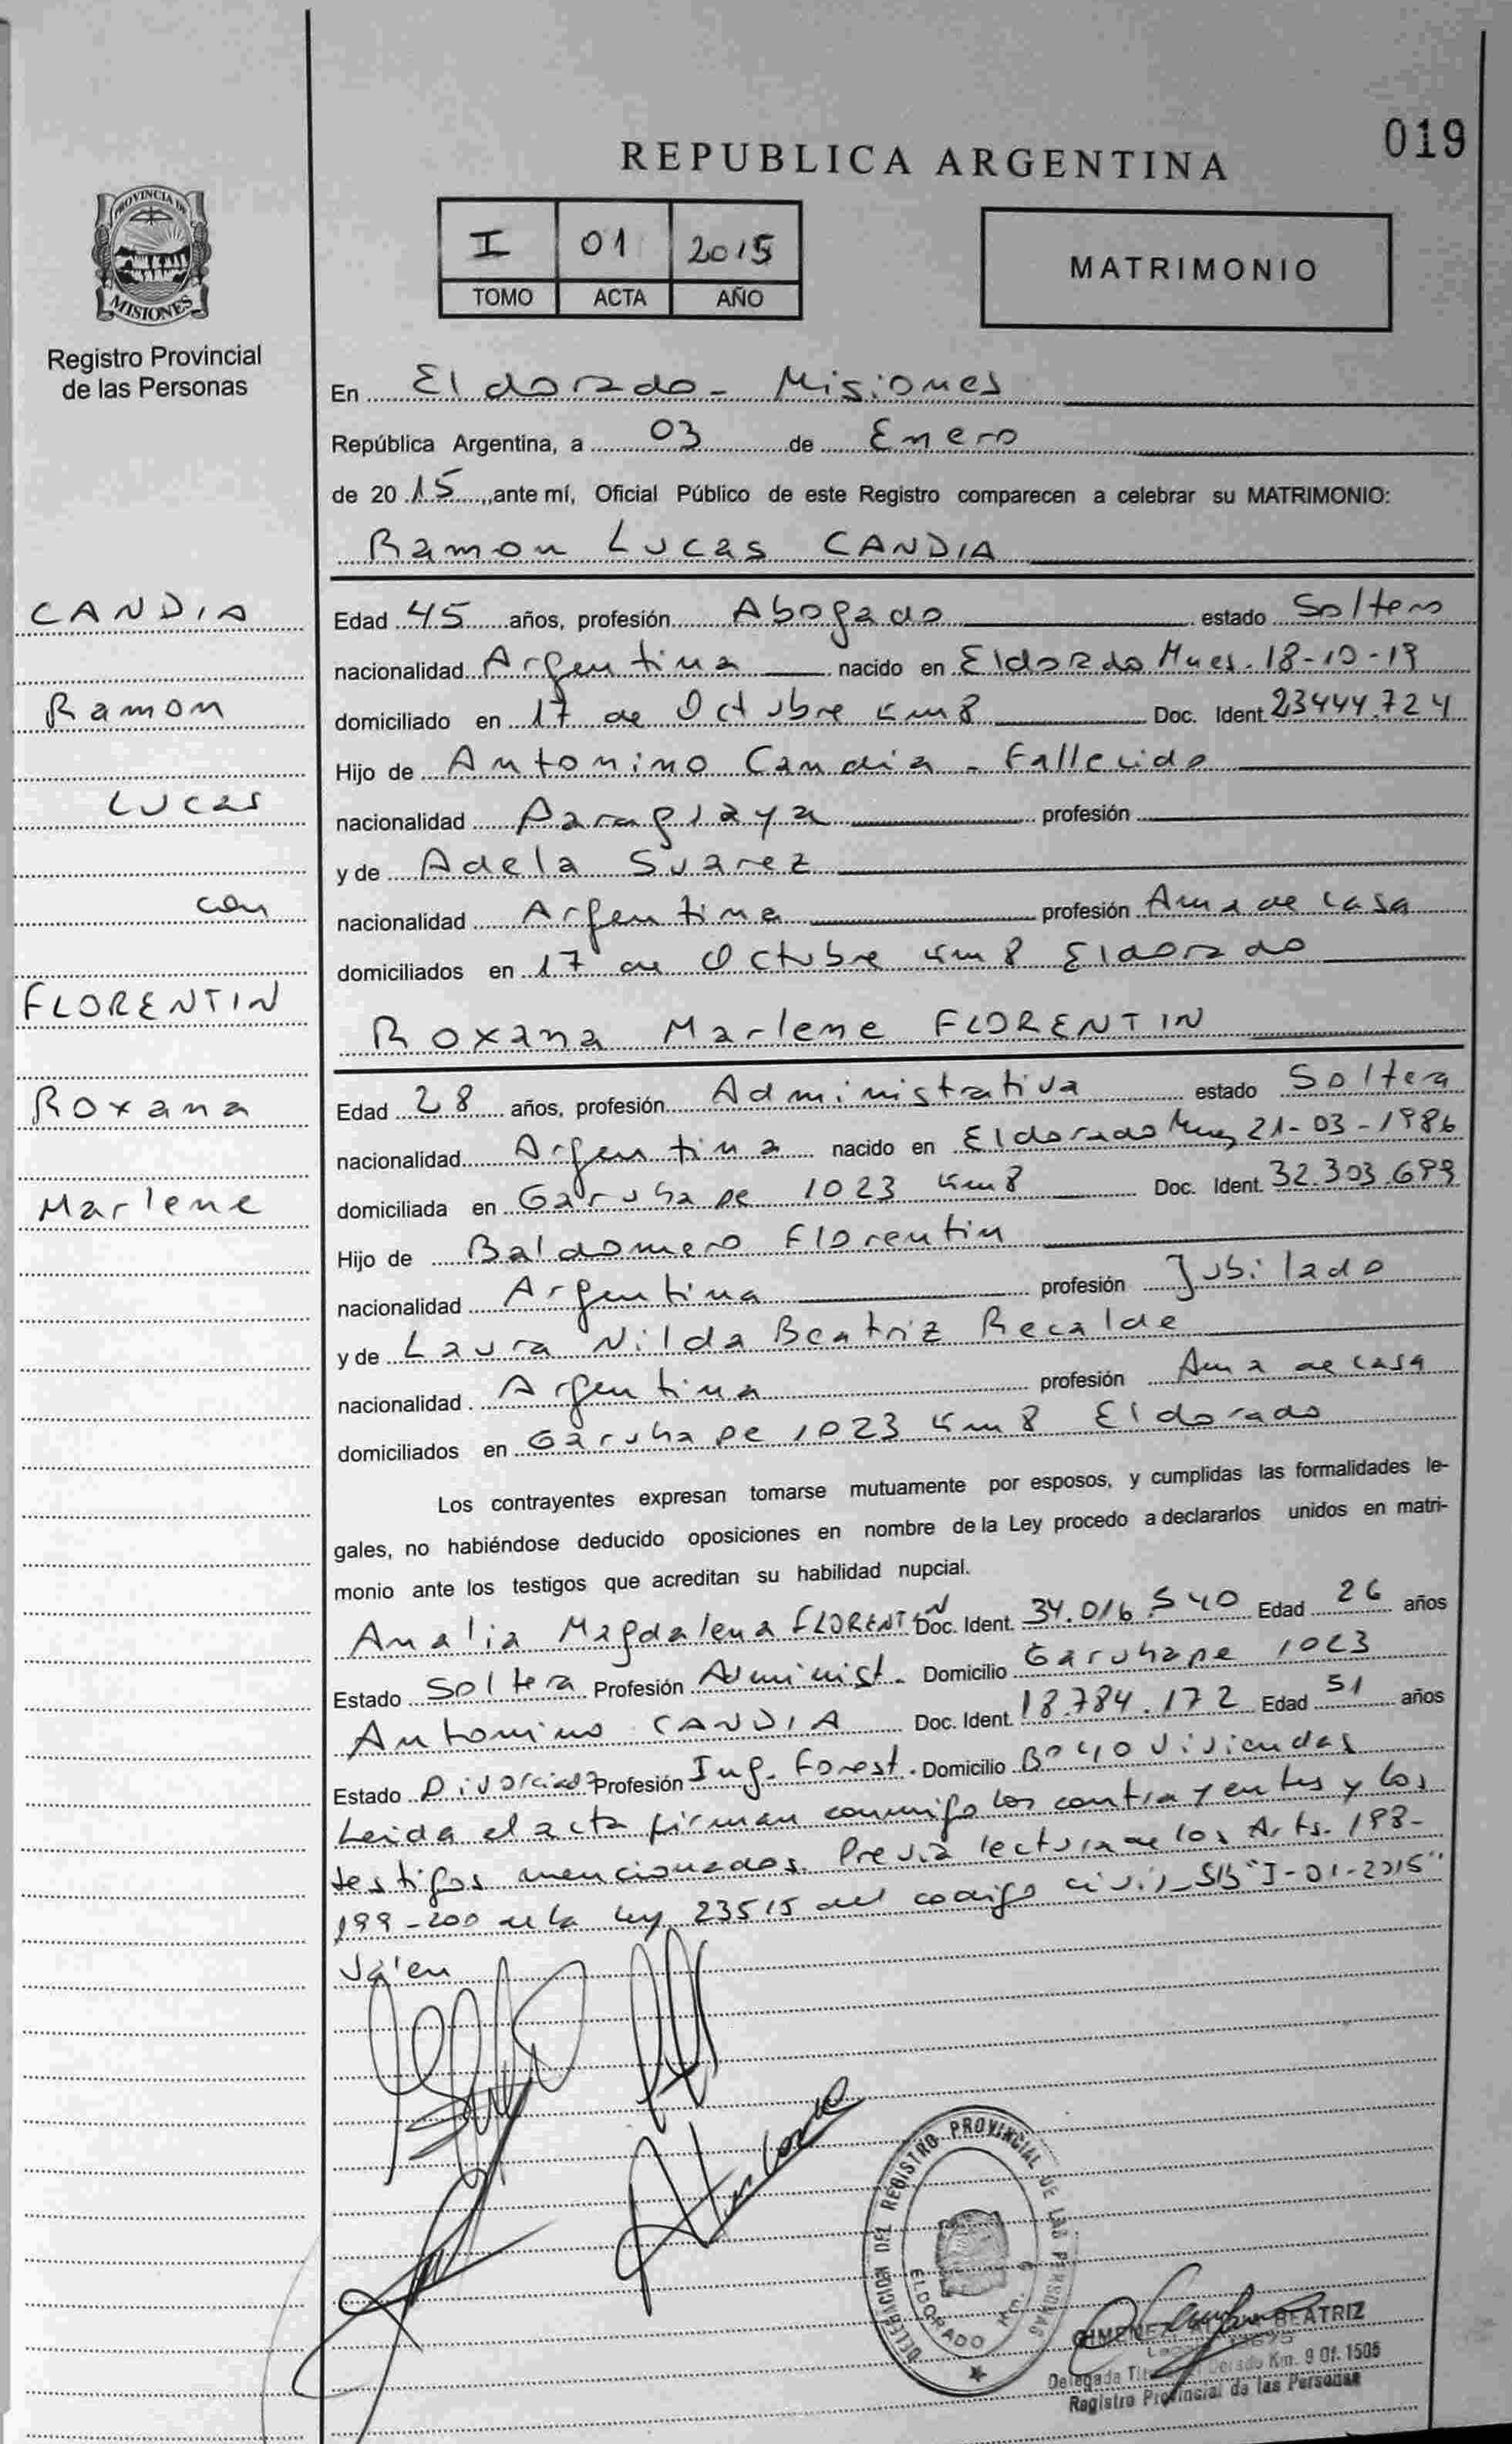 019
REPUBLICA ARGENTINA
PROVINCIA DE
MISIONES
Registro Provincial
de las Personas
I 01 2015
TOMO ACTA AÑO
MATRIMONIO
En Eldorado - Misiones
República Argentina, a 03 de Enero
de 20 15, ante mí, Oficial Público de este Registro comparecen a celebrar su MATRIMONIO:
Ramon Lucas CANDIA
CANDIA
Ramon
Lucas
con
FLORENTIN
Roxana
Marlene
Edad 45 años, profesión Abogado estado Soltero
nacionalidad Argentina nacido en Eldorado Mnes. 18-10-19
domiciliado en 17 de Octubre km 8 Doc. Ident. 23444.724
Hijo de Antonino Candia - Fallecido
nacionalidad Paraguaya profesión
y de Adela Suarez
nacionalidad Argentina profesión Ama de casa
domiciliados en 17 de Octubre km 8 Eldorado
Roxana Marlene FLORENTIN
Edad 28 años, profesión Administrativa estado Soltera
nacionalidad Argentina nacido en Eldorado Mnes 21-03-1986
domiciliada en Garuhape 1023 km 8 Doc. Ident. 32.303.699
Hijo de Baldomero Florentin
nacionalidad Argentina profesión Jubilado
y de Laura Nilda Beatriz Recalde
nacionalidad Argentina profesión Ama de casa
domiciliados en Garuhape 1023 km 8 Eldorado
Los contrayentes expresan tomarse mutuamente por esposos, y cumplidas las formalidades le-
gales, no habiéndose deducido oposiciones en nombre de la Ley procedo a declararlos unidos en matri-
monio ante los testigos que acreditan su habilidad nupcial.
Analia Magdalena FLORENTIN Doc. Ident. 34.016.540 Edad 26 años
Estado Soltera Profesión Administ. Domicilio Garuhape 1023
Antonino CANDIA Doc. Ident. 18.784.172 Edad 51 años
Estado Divorciado Profesión Ing. Forest. Domicilio Bº 40 Viviendas
Leida el acta firman conmigo los contrayentes y los
testigos mencionados. Previa lectura de los Arts. 198-
199-200 de la ley 23515 del codigo civil - S/B "I-01-2015"
Valen
DELEGACION DEL REGISTRO PROVINCIAL DE LAS PERSONAS
ELDORADO Km.
GIMENEZ BEATRIZ
Delegada Km. 9 Of. 1505
Registro Provincial de las Personas